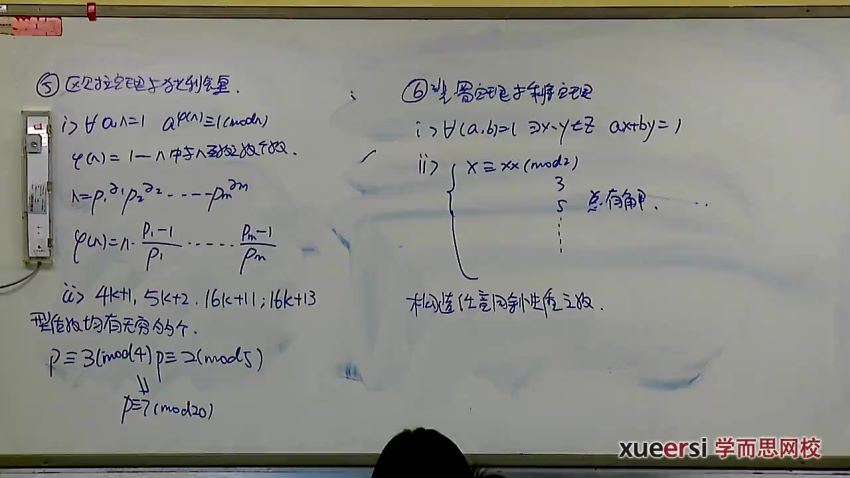 ⑤ 欧拉定理与狄利克雷.
i> ∀ a,n=1 a^φ(n)≡1(mod n)
φ(n)=1—n中与n互质之数个数.
n=p₁^∂₁ p₂^∂₂ ······ pₘ^∂ₘ
φ(n)=n·(p₁-1)/p₁ ······ (pₘ-1)/pₘ
ii> 4k+1, 5k+2. 16k+11; 16k+13
型质数均有无穷多个.
p≡3(mod4) p≡2(mod5)
⇓
p≡7(mod20)
⑥ 裴蜀定理与剩余定理
i> ∀(a,b)=1 ∃x,y∈Z ax+by=1
ii> { x≡xx(mod2)
3
5 总有解.
构造任意同余性质之数.
xueersi 学而思网校